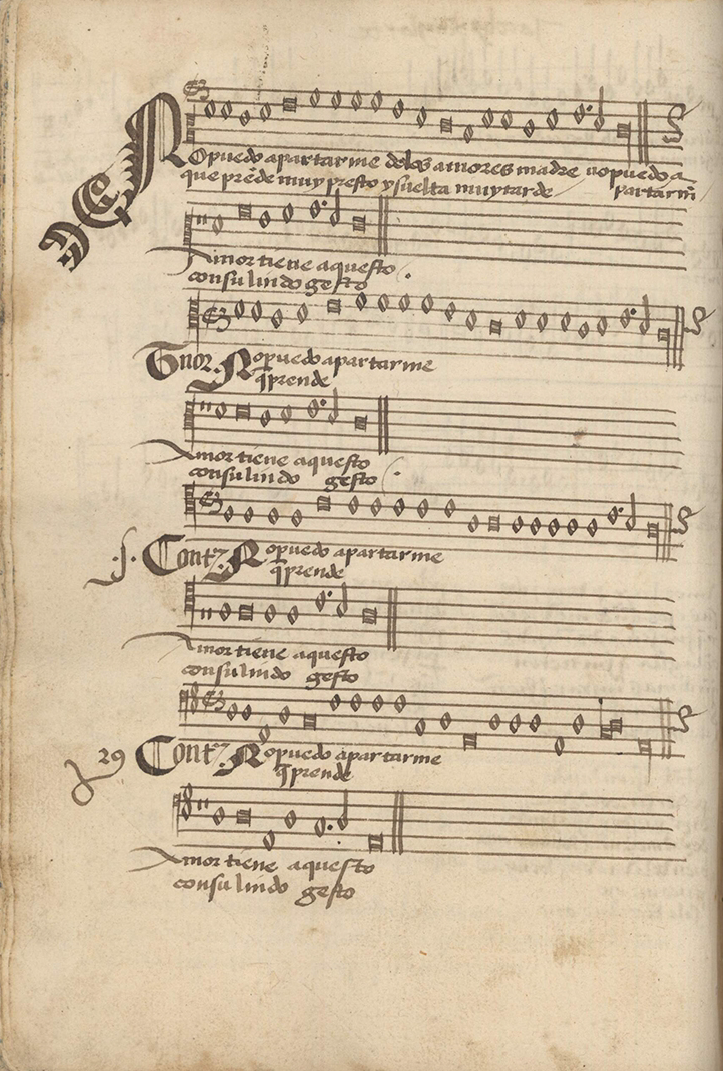 No puedo apartarme delos amores madre no puedo a-
que prende muy presto y suelta muy tarde / partarm̃
Amor tiene aquesto
consu lindo gesto
Tenor. No puedo apartarme
q̃ prende
Amor tiene aquesto
consu lindo gesto
.j. Contr̃. No puedo apartarme
q̃ prende
Amor tiene aquesto
consu lindo gesto
29 Contr̃. No puedo apartarme
q̃ prende
Amor tiene aquesto
consu lindo gesto